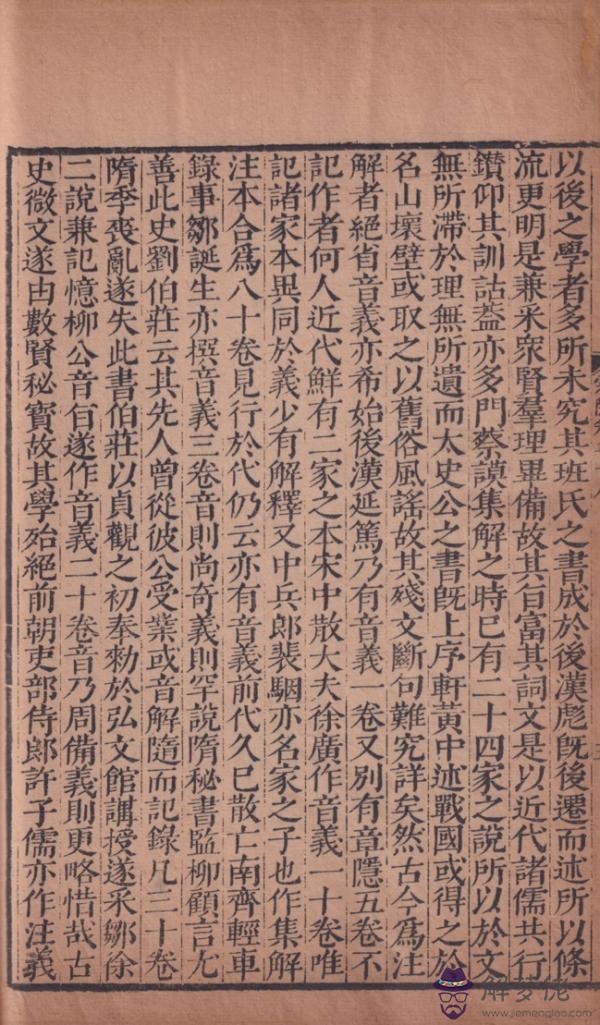 以後之學者多所未究其班氏之書成於後漢彪既後遷而述所以條
流更明是兼采衆賢羣理畢備故其㫖富其詞文是以近代諸儒共行
鑽仰其訓詁蓋亦多門蔡謨集解之時已有二十四家之說所以於文
無所滯於理無所遺而太史公之書旣上序軒黃中述戰國或得之於
名山壞壁或取之以舊俗風謠故其殘文斷句難究詳矣然古今爲注
解者絕省音義亦希始後漢延篤乃有音義一卷又別有章隱五卷不
記作者何人近代鮮有二家之本宋中散大夫徐廣作音義一十卷唯
記諸家本異同於義少有解釋又中兵郎裴駰亦名家之子也作集解
注本合爲八十卷見行於代仍云亦有音義前代久已散亡南齊輕車
錄事鄒誕生亦撰音義三卷音則尚奇義則罕說隋秘書監柳顧言尤
善此史劉伯莊云其先人曾從彼公受業或音解隨而記錄凡三十卷
隋季喪亂遂失此書伯莊以貞觀之初奉勑於弘文館講授遂采鄒徐
二說兼記憶柳公音㫖遂作音義二十卷音乃周備義則更略惜哉古
史微文遂由數賢秘寶故其學殆絕前朝吏部侍郎許子儒亦作注義
解夢佬
www.jiemenglao.com